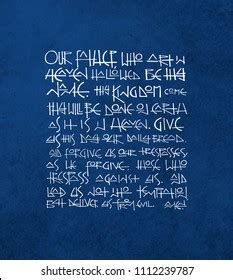 OUR FATHER WHO ART IN
HEAVEN HALLOWED BE THY
NAME THY KINGDOM COME
THY WILL BE DONE ON EARTH
AS IT IS IN HEAVEN. GIVE
US THIS DAY OUR DAILY BREAD.
AND FORGIVE US OUR TRESPASSES,
AS WE FORGIVE THOSE WHO
TRESPASS AGAINST US, AND
LEAD US NOT INTO TEMPTATION
BUT DELIVER US FROM EVIL. AMEN.
shutterstock.com · 1112239787